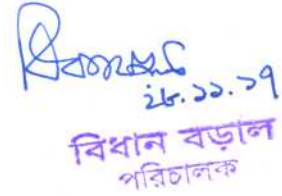 ২৮.১১.১৭
বিধান বড়াল
পরিচালক